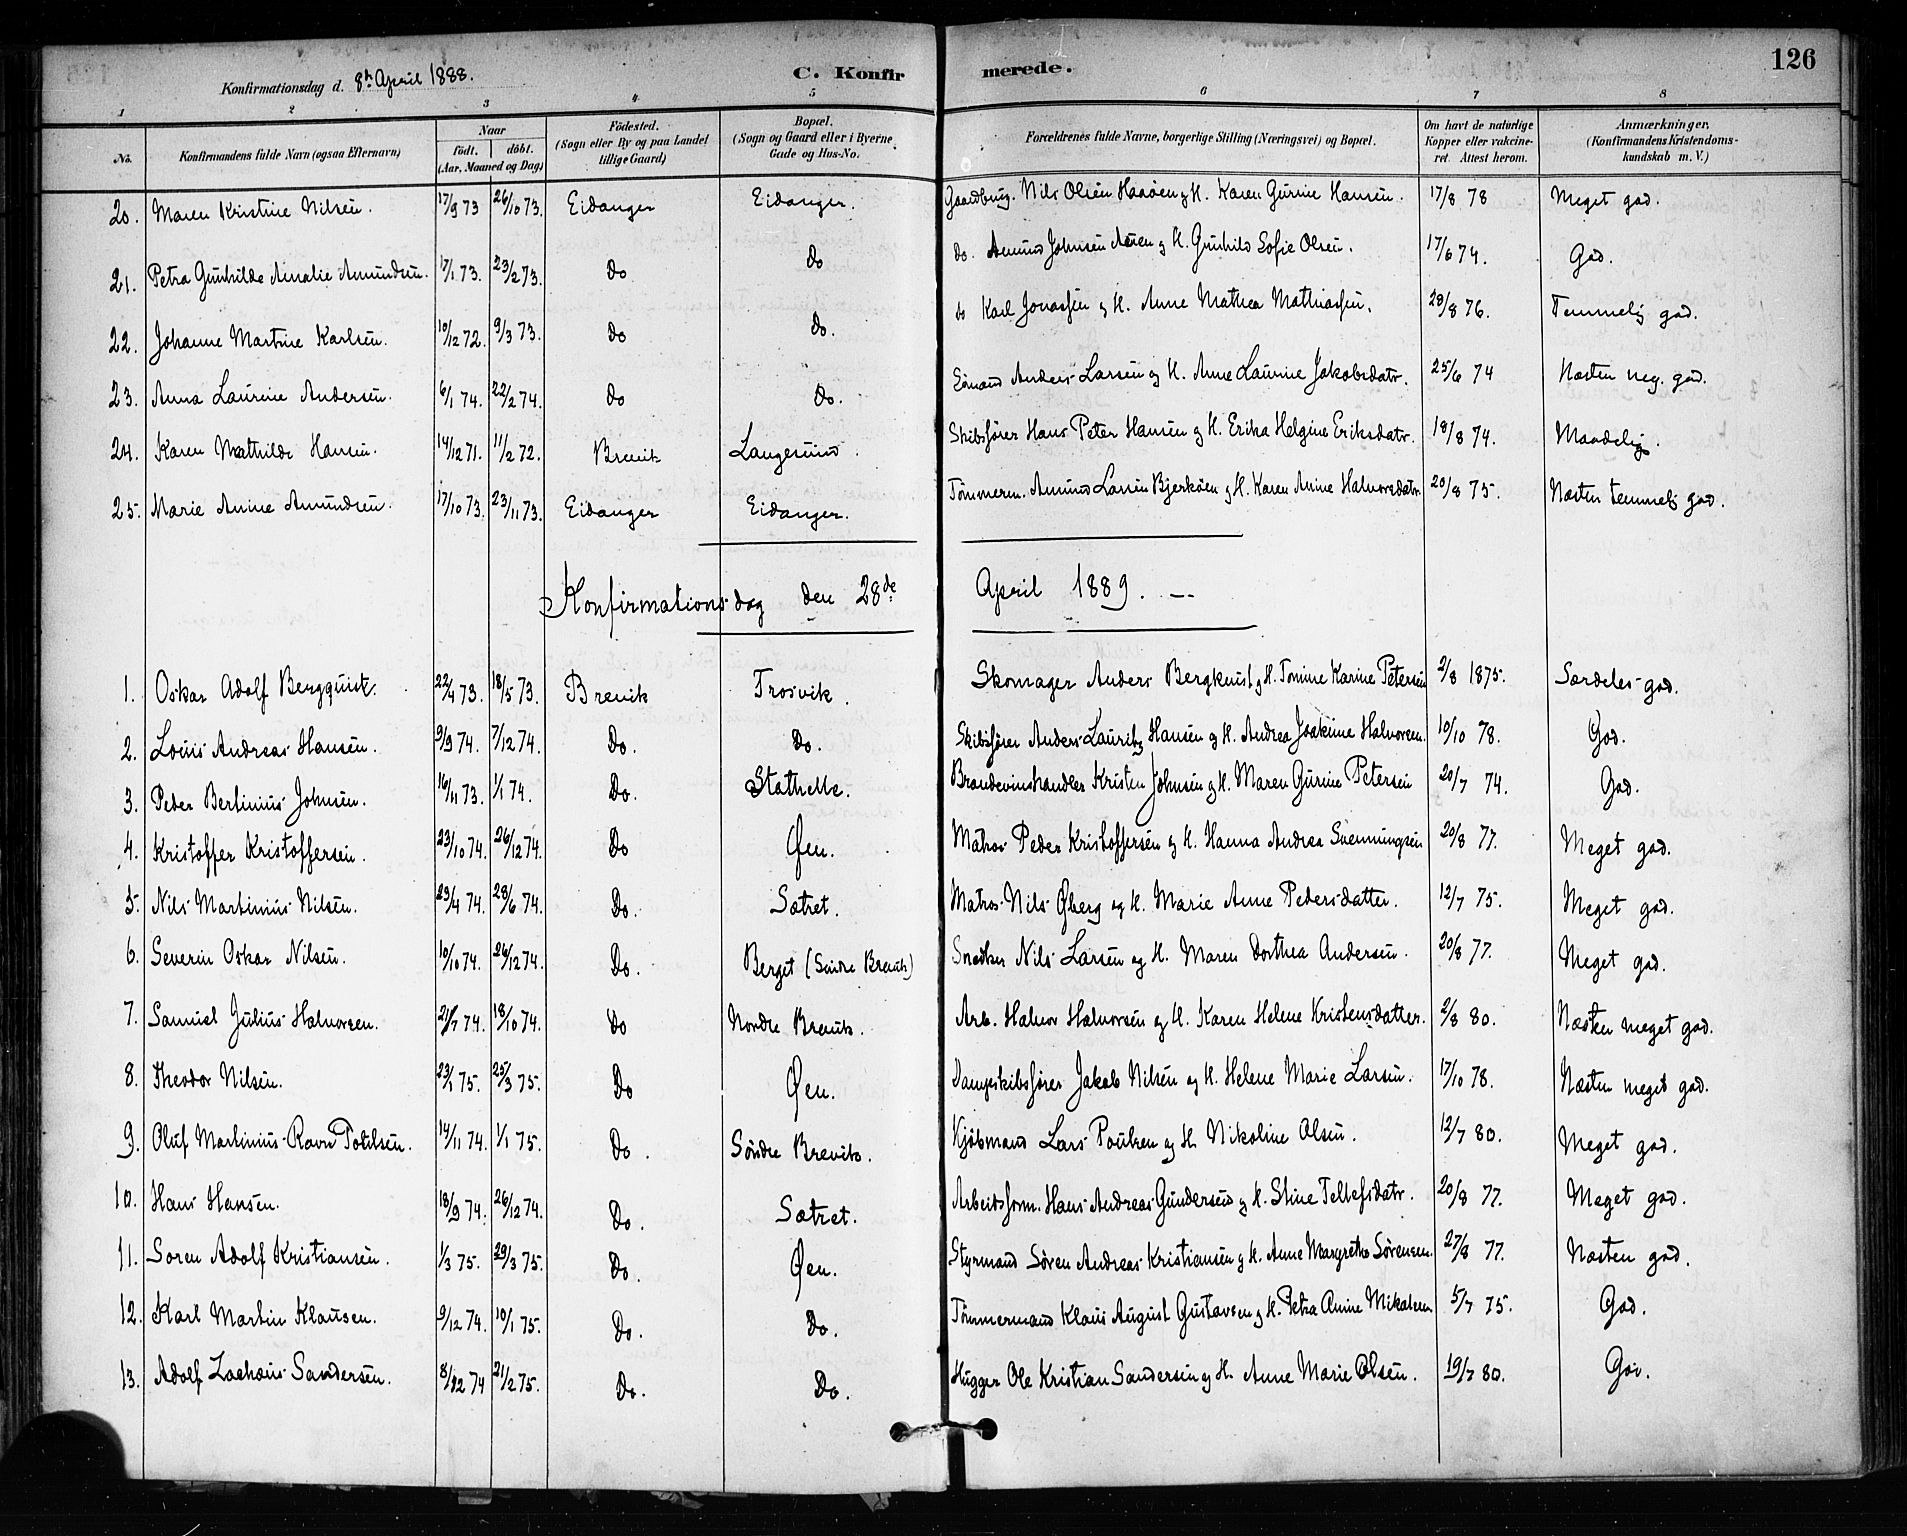 126
Konfirmationsdag d. 8de April 1888.
C. Konfirmerede.
1 2 3 4 5 6 7 8
No. Konfirmandens fulde Navn (ogsaa Efternavn) Naar födt. döbt. (Aar, Maaned og Dag) Födested. (Sogn eller By og paa Landet tillige Gaard) Bopæl. (Sogn og Gaard eller i Byerne Gade og Hus-No. Forældrenes fulde Navne, borgerlige Stilling (Næringsvei) og Bopæl. Om havt de naturlige Kopper eller vakcineret. Attest herom. Anmærkninger. (Konfirmandens Kristendomskundskab m. V.)
20. Maren Kristine Nilsen. 17/9 73 26/10 73. Eidanger Eidanger. Gaardbrug. Nils Olsen Haaøen og H. Karen Gurine Hansen. 17/8 78 Meget god.
21. Petra Gunhilde Amalie Amundsen. 17/1 73. 23/2 73. Do Do do. Amund Johnsen og H. Gunhild Sofie Olsen. 17/6 74. God.
22. Johanne Martine Karlsen. 10/12 72. 9/3 73. Do Do. do Karl Jonassen og H. Anne Mathea Mathiassen. 28/8 76. Temmelig god.
23. Anna Laurine Andersen. 6/1 74. 22/2 74. Do Do. Anders Larsen og H. Anne Laurine Jakobsdatr. 25/6 74 Næsten meg. god.
24. Karen Mathilde Hansen. 14/12 71. 11/2 72. Brevik Langesund. Skibsfører Hans Peter Hansen og H. Erika Helgine Eriksdatr. 18/8 74. Maadelig.
25. Marie Anine Amundsen. 17/10 73. 23/11 73. Eidanger Eidanger. Tömmerm. Amund Larsen Bjerköen og H. Karen Anine Halvorsdatr 20/8 75. Næsten temmelig god.
Konfirmationsdag den 28de April 1889.
1. Oskar Adolf Bergquist. 22/4 73. 18/5 73. Brevik Trosvik. Skomager Anders Bergkvist og H. Tomine Karine Petersen 2/8 1875. Særdeles god.
2. Louis Andreas Hansen. 9/9 74. 7/12 74. Do. Do. Skibsfører Anders Lauritz Hansen og H. Andrea Joakime Halvorsen. 19/10 78. God.
3. Peder Bertinius Johnsen. 16/11 73. 1/1 74. Do. Stathelle. Brændevinshandler Kristen Johnsen og H. Maren Gurine Petersen 20/7 74. God.
4. Kristoffer Kristoffersen. 23/10 74. 26/12 74. Do Øen. Matros Peder Kristoffersen og H. Hanna Andrea Svenningsen 20/8 77. Meget god.
5. Nils Martinius Nilsen. 29/4 74. 28/6 74. Do. Sætret. Matros Nils Øberg og H. Marie Anne Pedersdatter. 12/7 75. Meget god.
6. Severin Oskar Nilsen. 10/10 74. 26/12 74. Do. Berget (Søndre Brevik) Snedker Nils Larsen og H. Maren Dorthea Andersen. 20/8 77. Meget god.
7. Samuel Julius Halvorsen. 21/7 74. 18/10 74. Do Nordre Brevik. Arb. Halvor Halvorsen og H. Karen Helene Kristensdatter. 2/8 80. Næsten meget god.
8. Theodor Nilsen. 23/1 75. 25/3 75. Do Øen. Dampskibsfører Jakob Nilsen og H. Helene Marie Larsen. 17/10 78. Næsten meget god.
9. Oluf Martinius Ravn 14/11 74. 1/1 75. Do. Söndre Brevik. Kjöbmand Lars Poulsen og H. Nikoline Olsen. 12/7 80. Meget god.
10. Hans Hansen. 18/9 74. 26/12 74. Do. Sætret. Arbeidsform. Hans Andreas Gundersen og H. Stine Tellefsdatr. 20/8 77. Meget god.
11. Søren Adolf Kristiansen. 1/3 75. 29/3 75. Do. Øen. Styrmand Søren Andreas Kristiansen og H. Anne Margrethe Sørensen. 27/8 77. Næsten god.
12. Karl Martin Klausen. 9/12 74. 10/1 75. Do. Do. Tömmermand Klaus August Gustavsen og H. Petra Anine Mikalsen 5/7 75. God.
13. Adolf Zachæus Sandersen. 8/12 74 21/2 75. Do. Do. Hugger Ole Kristian Sandersen og H. Anne Marie Olsen. 19/7 80. God.